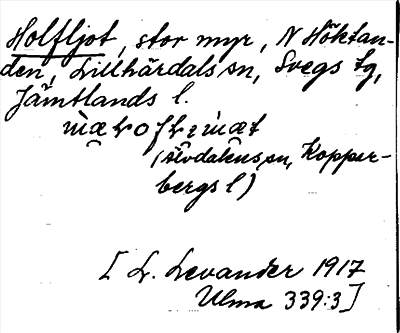 Holfljot, stor myr, N Höktan-
den, Lillhärdals sn, Svegs tg,
Jämtlands l.
(Älvdalens sn, Kopper-
bergs l)
[L. Levander 1917
Ulma 339:3]